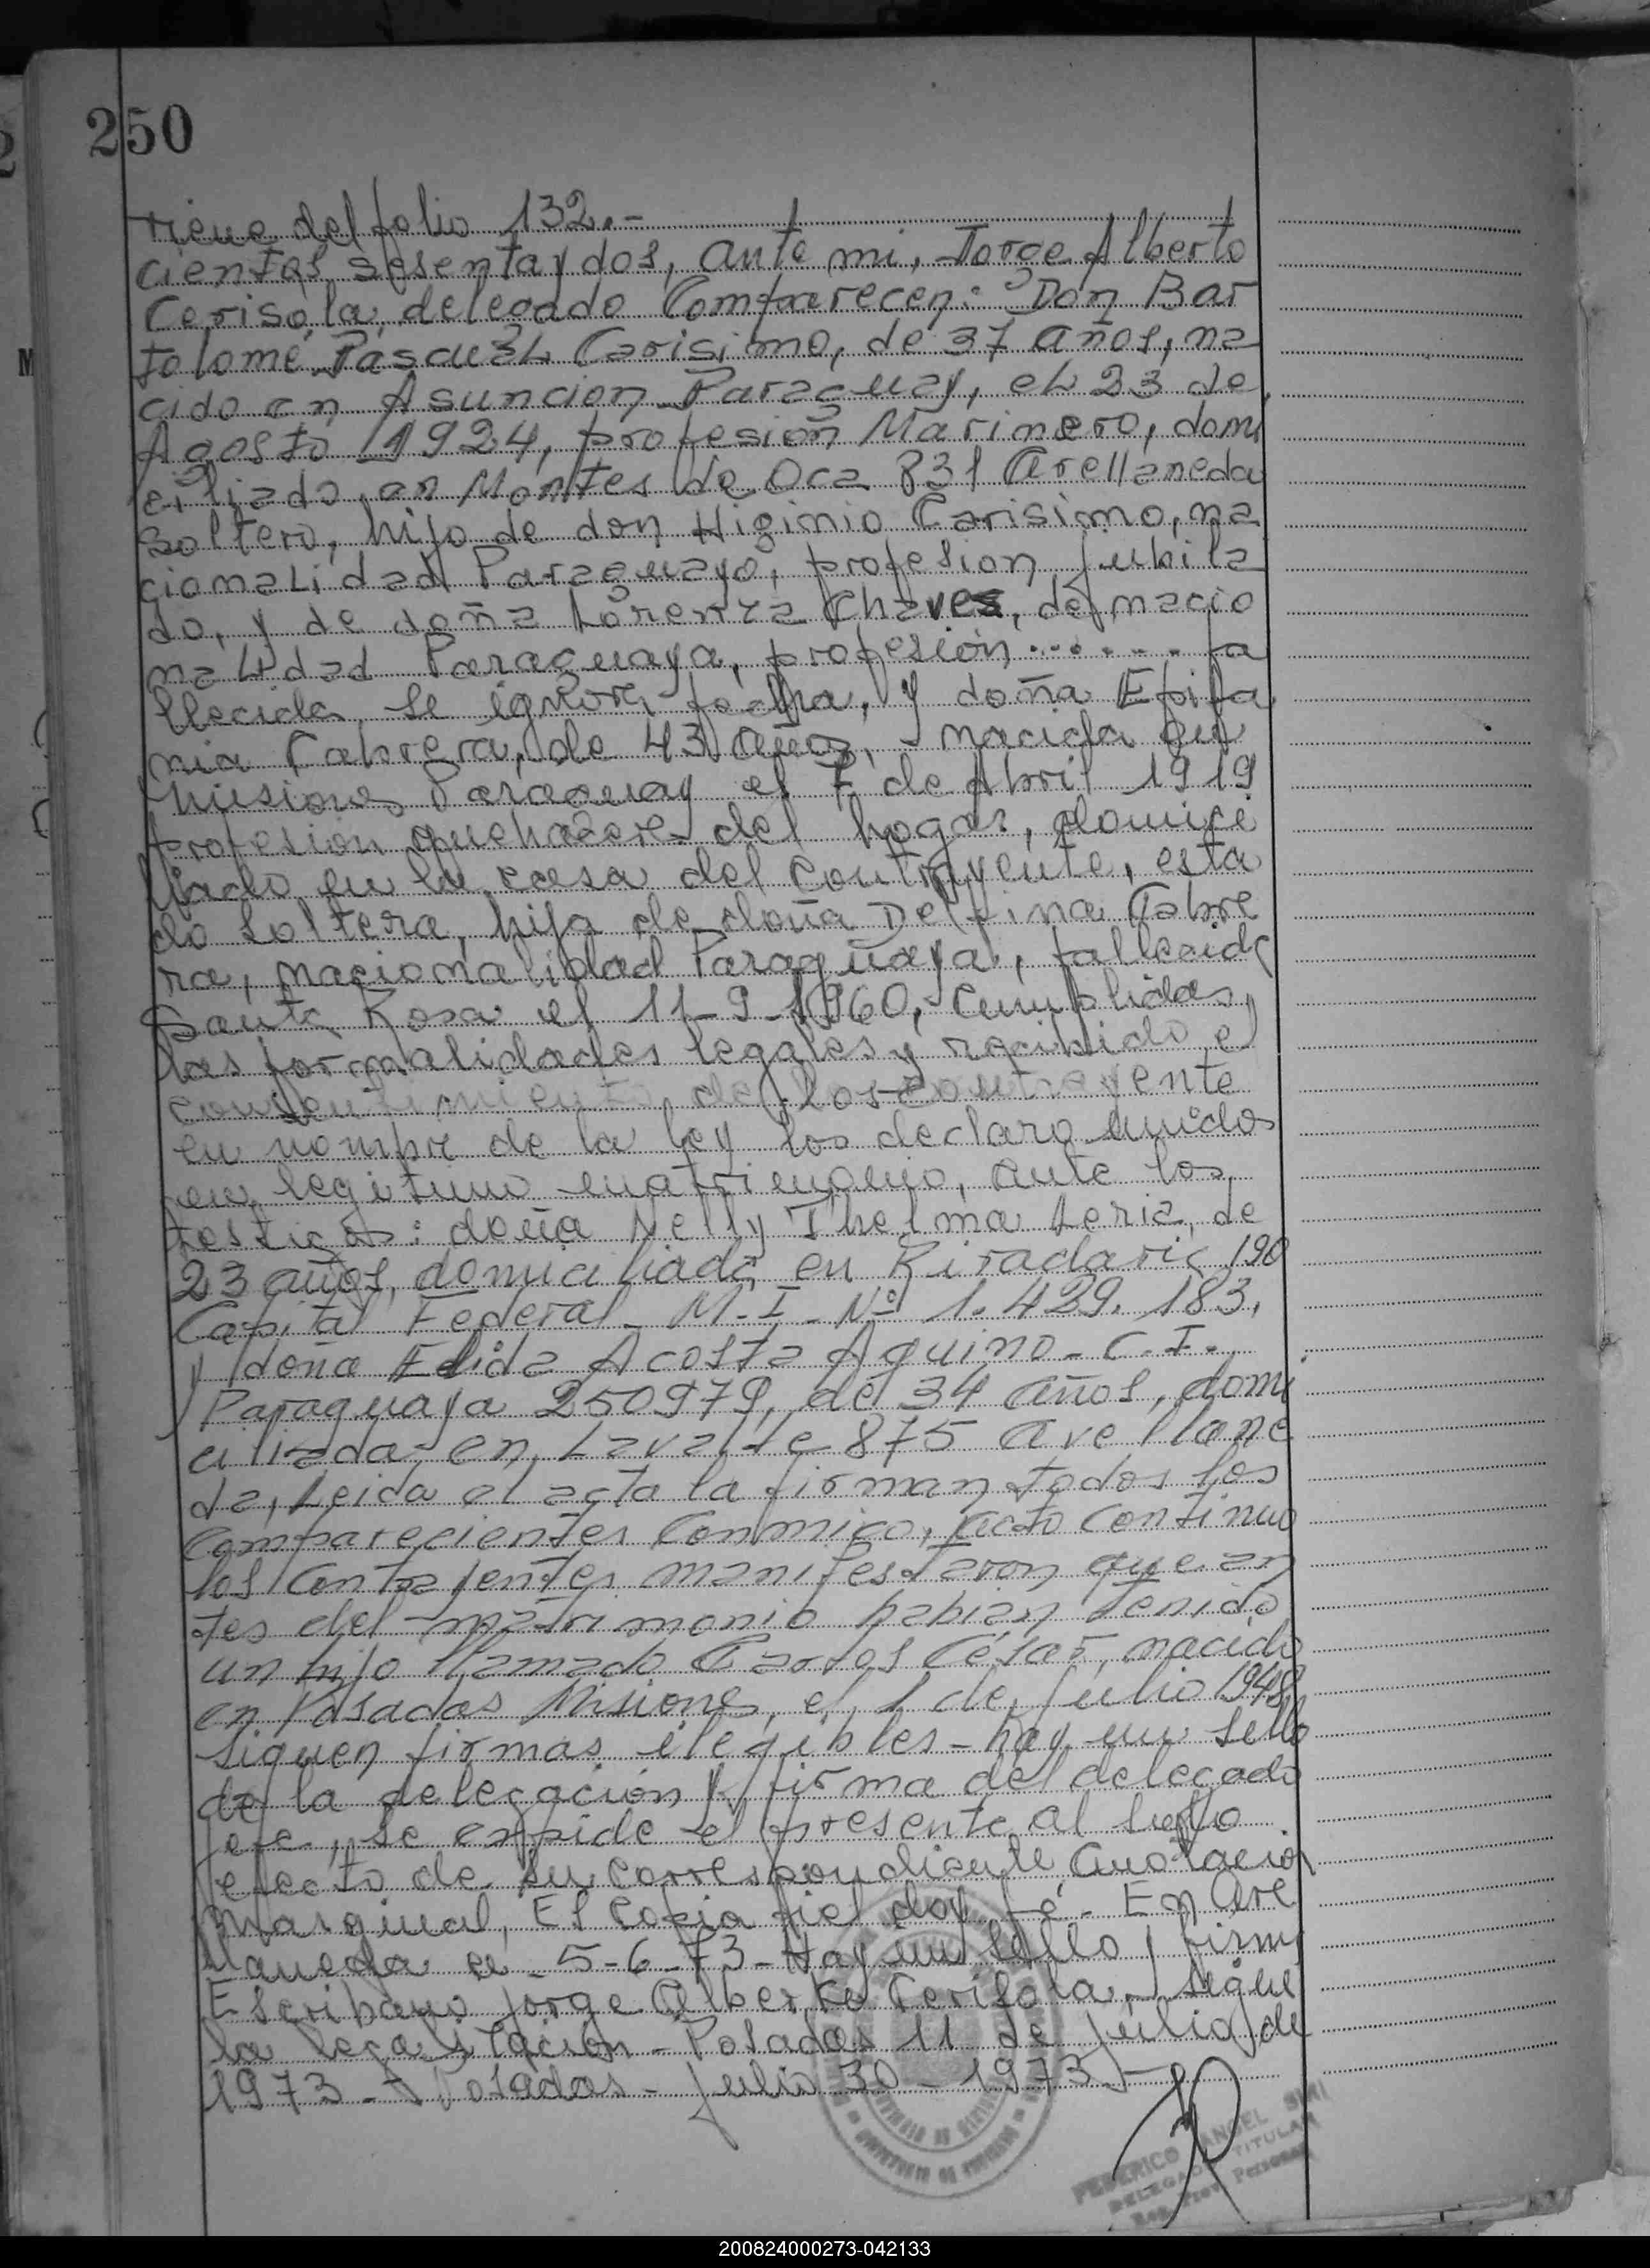 250
viene del folio 132.-
cientos sesenta y dos, ante mi, Jorge Alberto
Cerisola, delegado Comparecen: Don Bar
tolomé Pascual Carisimo, de 37 años, na
cido en Asuncion Paraguay, el 23 de
Agosto 1924, profesión Marinero, domi
ciliado, en Montes de Oca 831 Avellaneda
soltero, hijo de don Higinio Carisimo, na
cionalidad Paraguayo, profesion jubila
do, y de doña Lorenza Chaves, de nacio
nalidad Paraguaya, profesión ........ fa
llecida, se ignora fecha, y doña Epifa
nia Cabrera, de 43 años, nacida en
Misiones Paraguay el 7 de Abril 1919
profesion quehaceres del hogar, domici
liado en la casa del contrayente, esta
do soltera, hija de doña Delfina Cabre
ra, nacionalidad Paraguaya, fallecida
Santa Rosa el 11-9-1960, cumplidas
las formalidades legales y recibido el
consentimiento de los contrayente
en nombre de la ley los declaro unidos
en legitimo matrimonio, ante los
testigos: doña Nelly Thelma Leria, de
23 años, domiciliada en Rivadavia 190
Capital Federal - M.I. Nº 1.429.183,
y doña Elida Acosta Aquino - C.I.
Paraguaya 250979, de 34 años, domi
ciliada en Lavalle 875 Avellane
da, Leida el acta la firman todos los
comparecientes conmigo, acto continuo
los contrayentes manifestaron que an
tes del matrimonio habian tenido
un hijo llamado Carlos César, nacido
en Posadas Misiones, el 1 de julio 1948
Siguen firmas ilegibles - hay un sello
de la delegación y firma del delegado
jefe, se expide el presente al solo
efecto de su correspondiente anotacion
marginal, Es copia fiel doy fé - En Ave
llaneda a - 5-6-73 - Hay un sello y firma
Escribano Jorge Alberto Cerisola - sigue
la legalización - Posadas 11 de julio de
1973 - Posadas - julio 30 - 1973 -
FEDERICO ANGEL
DELEGADO TITULAR
200824000273-042133